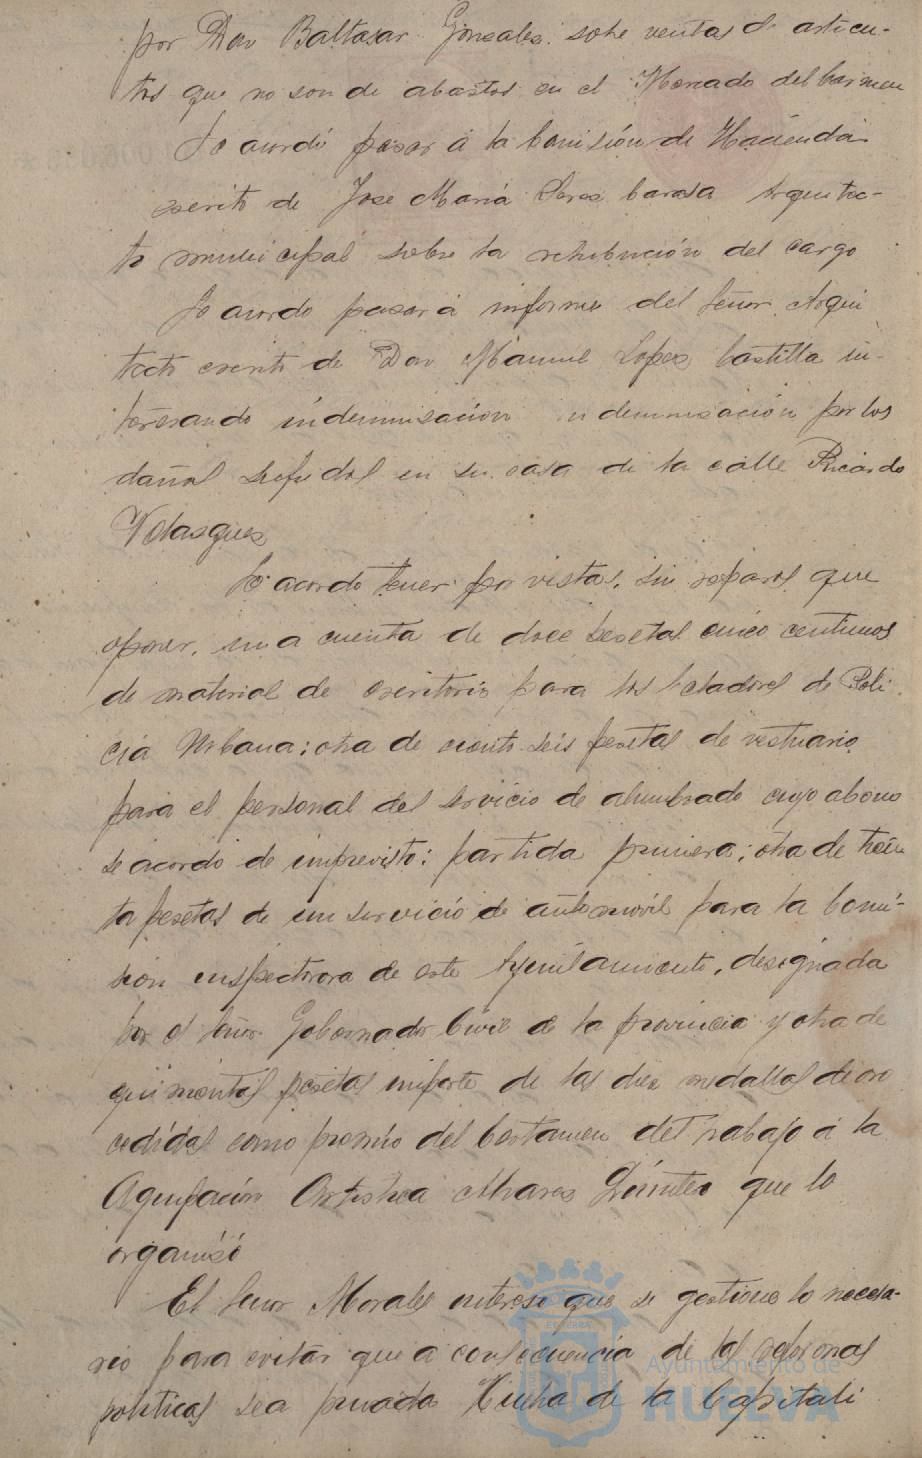 por Don Baltasar Gonzalez sobre ventas de articu-
los que no son de abastos en el Mercado del Carmen
Se acordó pasar á la Comisión de Hacienda
escrito de Jose Maria Perez Carasa Arquitec-
to municipal sobre la retribución del cargo
Se acordo pasar á informe del Señor Arqui
tecto escrito de Don Manuel Lopez Castilla in-
teresando indemnisacion indemnisación por los
daños sufridos en su casa de la calle Ricardo
Velasquez
Se acordo tener por vistas, sin reparos que
oponer, una cuenta de doce pesetas cinco centimos
de material de escritorio para los Celadores de Poli
cia Urbana; otra de ciento seis pesetas de vestuario
para el personal del servicio de alumbrado cuyo abono
se acordo de imprevisto: partida primera; otra de trein
ta pesetas de un servicio de automovil para la Comi-
sion inspectora de este Ayuntamiento, designada
por el Señor Gobernador Civil de la provincia y otra de
quinientas pesetas importe de las diez medallas de oro
cedidas como premio del Certamen del trabajo á la
Agrupación Artistica Alvarez Quintero que lo
organisó
El Señor Morales intereso que se gestione lo necesa-
rio para evitar que a consecuencia de las reformas
politicas sea privada Huelva de la Capitali
Ayuntamiento de
HUELVA